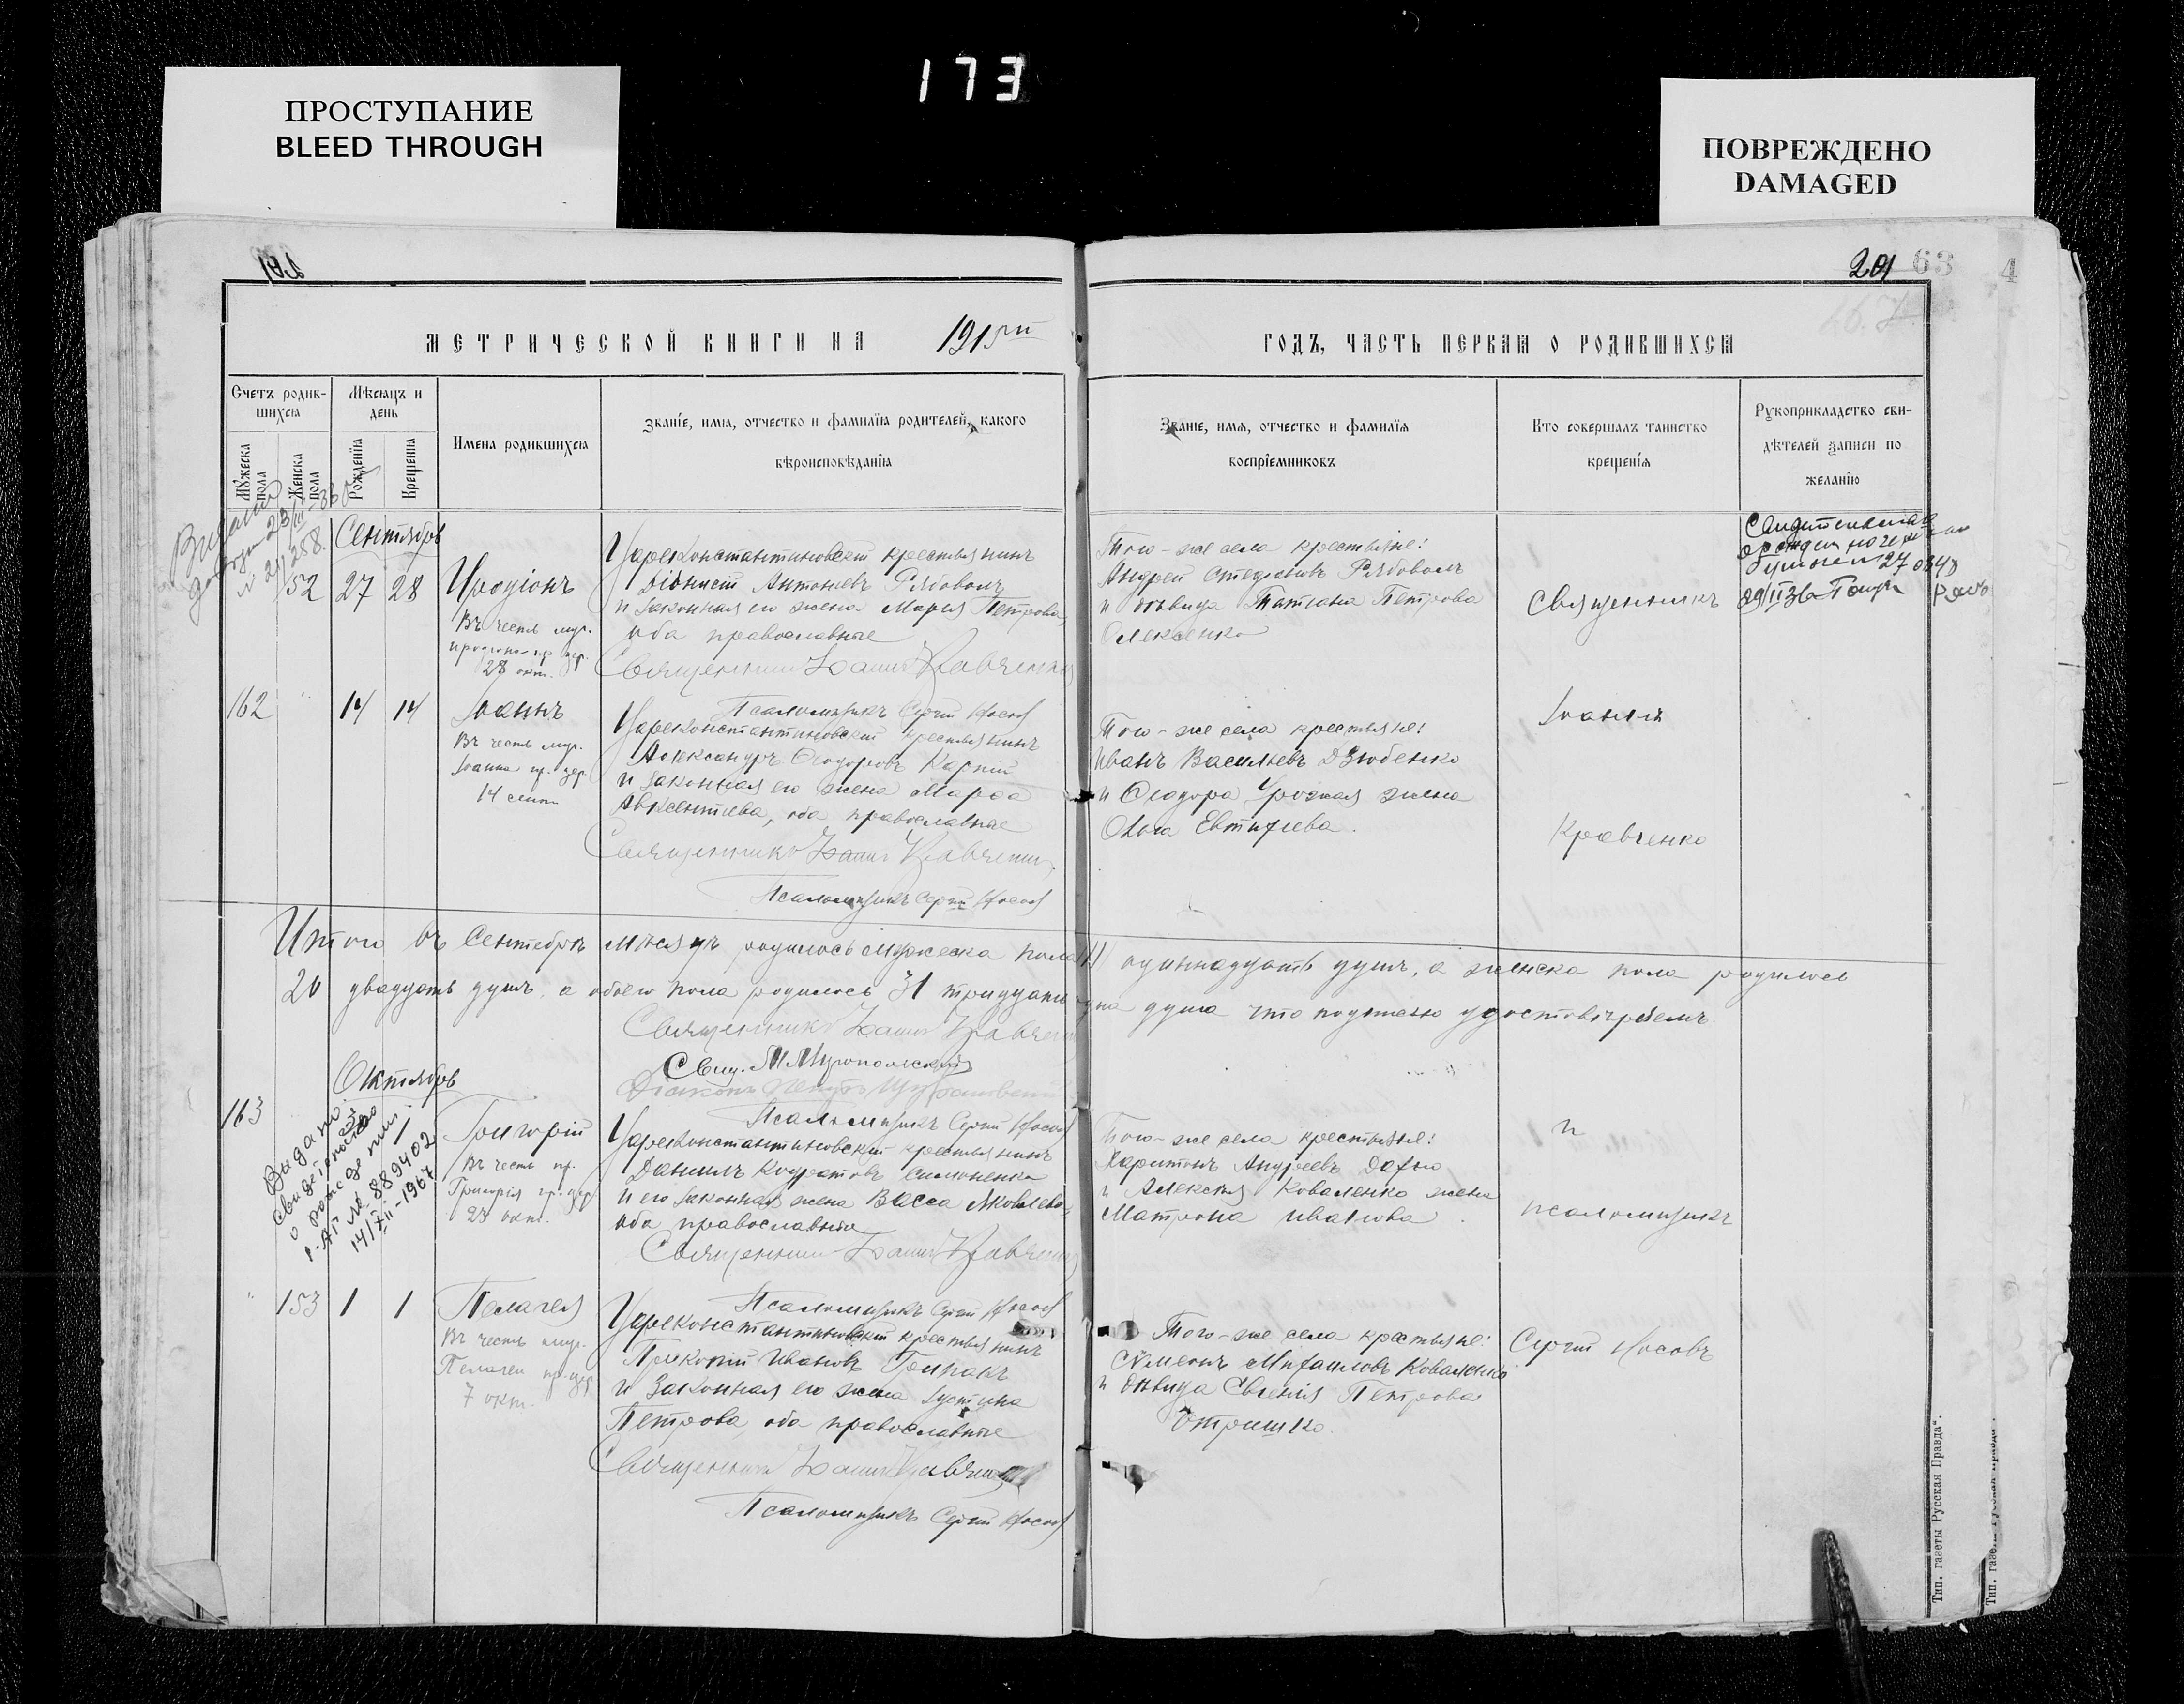 173
ПРОСТУПАНИЕ
BLEED THROUGH
ПОВРЕЖДЕНО
DAMAGED
201 63
4
МЕТРИЧЕСКОЙ КНИГИ НА 1915 ГОДЪ, ЧАСТЬ ПЕРВАЯ О РОДИВШИХСЯ
Счетъ родив-
шихся
Мѣсяцъ и
день
Мужеска
пола
Женска
пола
Рожденія
Крещенія
Имена родившихся
Званіе, имя, отчество и фамилія родителей, какого
вѣроисповѣданія
Званіе, имя, отчество и фамилія
воспріемниковъ
Кто совершалъ таинство
крещенія
Рукоприкладство сви-
дѣтелей записи по
желанію
Сентябрь
152 27 28
Въ честь муч.
28 окт.
Цареконстантиновскій крестьянинъ
Діонисій Антоніевъ Рябоволъ
и законная его жена Марія Петрова,
оба православные
Священникъ Іоаннъ Кравченко
Псаломщикъ Сергій Носовъ
Того-же села крестьяне:
Андрей Стефановъ Рябоволъ
и дѣвица Татіана Петрова
Олексенко
Священникъ
162 " 14 14 Іоаннъ
Въ честь
Іоанна пр. цер.
14 сент.
Цареконстантиновскій крестьянинъ
Александръ Ѳеодоровъ Карпій
и законная его жена Марѳа
Авксентіева, оба православные
Священникъ Іоаннъ Кравченко
Псаломщикъ Сергій Носовъ
Того-же села крестьяне:
Иванъ Васильевъ Дзюбенко
и Ѳеодора жена
Ольга Евтихіева.
Іоаннъ
Кравченко
Итого въ Сентябрѣ мѣсяцѣ родилось мужеска пола 11 одиннадцать душъ, а женска пола родилось
20 двадцать душъ, а обоего пола родилось 31 тридцать одна душа что подписью удостовѣряемъ.
Священникъ Іоаннъ Кравченко
Свящ. М Миропольскій
Діаконъ Петръ
Псаломщикъ Сергій Носовъ
Октябрь
163
Видано
свидетельство
о рождении
889402
14/XII-1967
1
Григорій
Въ честь пр.
Григорія пр. цер.
28 окт.
Цареконстантиновскій крестьянинъ
Даніилъ Кондратовъ Симоненко
и его законная жена Васса Яковлева,
оба православные
Священникъ Іоаннъ Кравченко
Псаломщикъ Сергій Носовъ
Того-же села крестьяне:
Харитонъ Андреевъ Дахно
и Алексія Коваленко жена
Матрона Иванова.
и
псаломщикъ
" 153 1 1 Пелагея
Въ честь муч.
Пелагеи пр. цер.
7 окт.
Цареконстантиновскій крестьянинъ
Прокопій Ивановъ
и законная его жена Іустина
Петрова, оба православные
Священникъ Іоаннъ Кравченко
Псаломщикъ Сергій Носовъ
Того-же села крестьяне:
Сѵмеонъ Михаиловъ Коваленко
и дѣвица Евгенія Петрова
Отришко.
Сергій Носовъ
Тип. газеты Русская Правда".